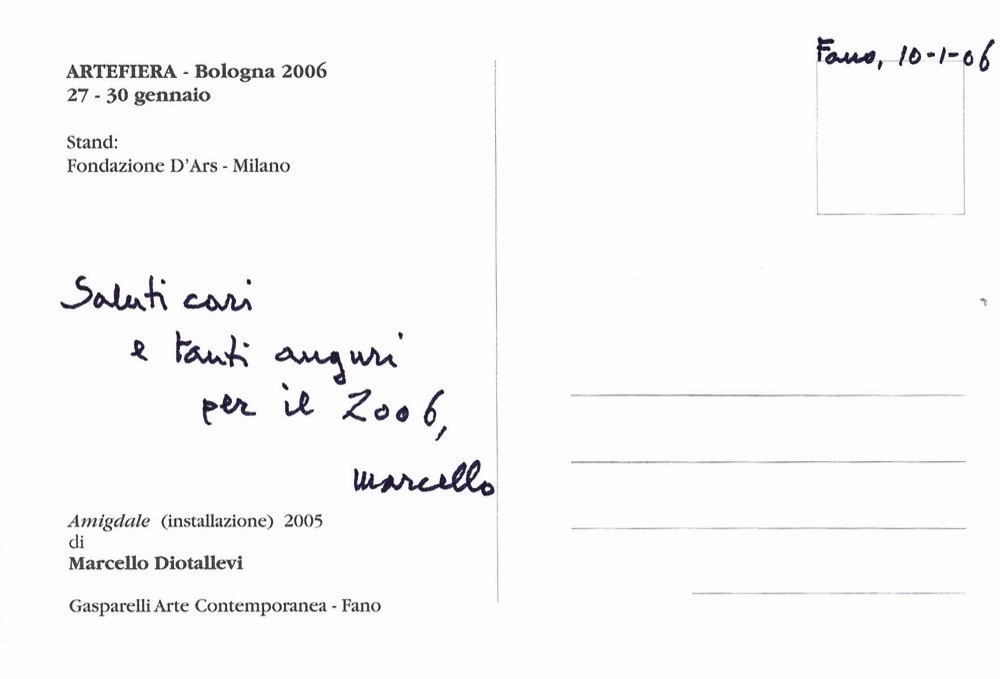 Fano, 10-1-06
ARTEFIERA - Bologna 2006
27 - 30 gennaio
Stand:
Fondazione D'Ars - Milano
Saluti cari
e tanti auguri
per il 2006,
Marcello
Amigdale (installazione) 2005
di
Marcello Diotallevi
Gasparelli Arte Contemporanea - Fano